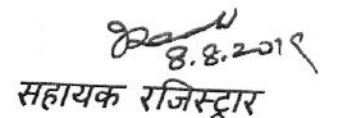 8.8.201९
सहायक रजिस्ट्रार